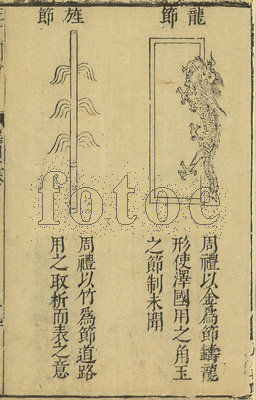 龍節
周禮以金爲節鑄龍
形使澤國用之角玉
之節制未聞
旌節
周禮以竹爲節道路
用之取析而表之意
fotoe